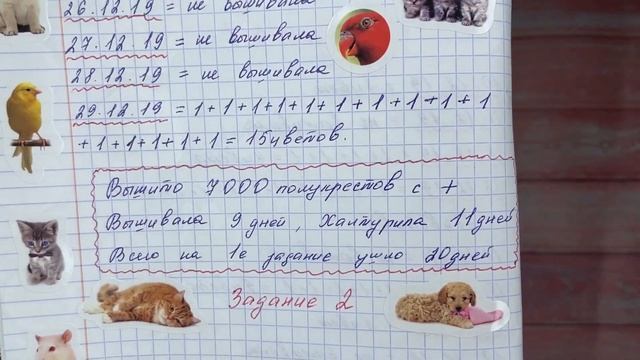 26.12.19 = не вышивала
27.12.19 = не вышивала
28.12.19 = не вышивала
29.12.19 = 1+1+1+1+1+1+1+1+1+1
+1+1+1+1+1 = 15 цветов.
Вышито 7000 полукрестов с +
Вышивала 9 дней, Халтурила 11 дней
Всего на 1е задание ушло 20 дней
Задание 2